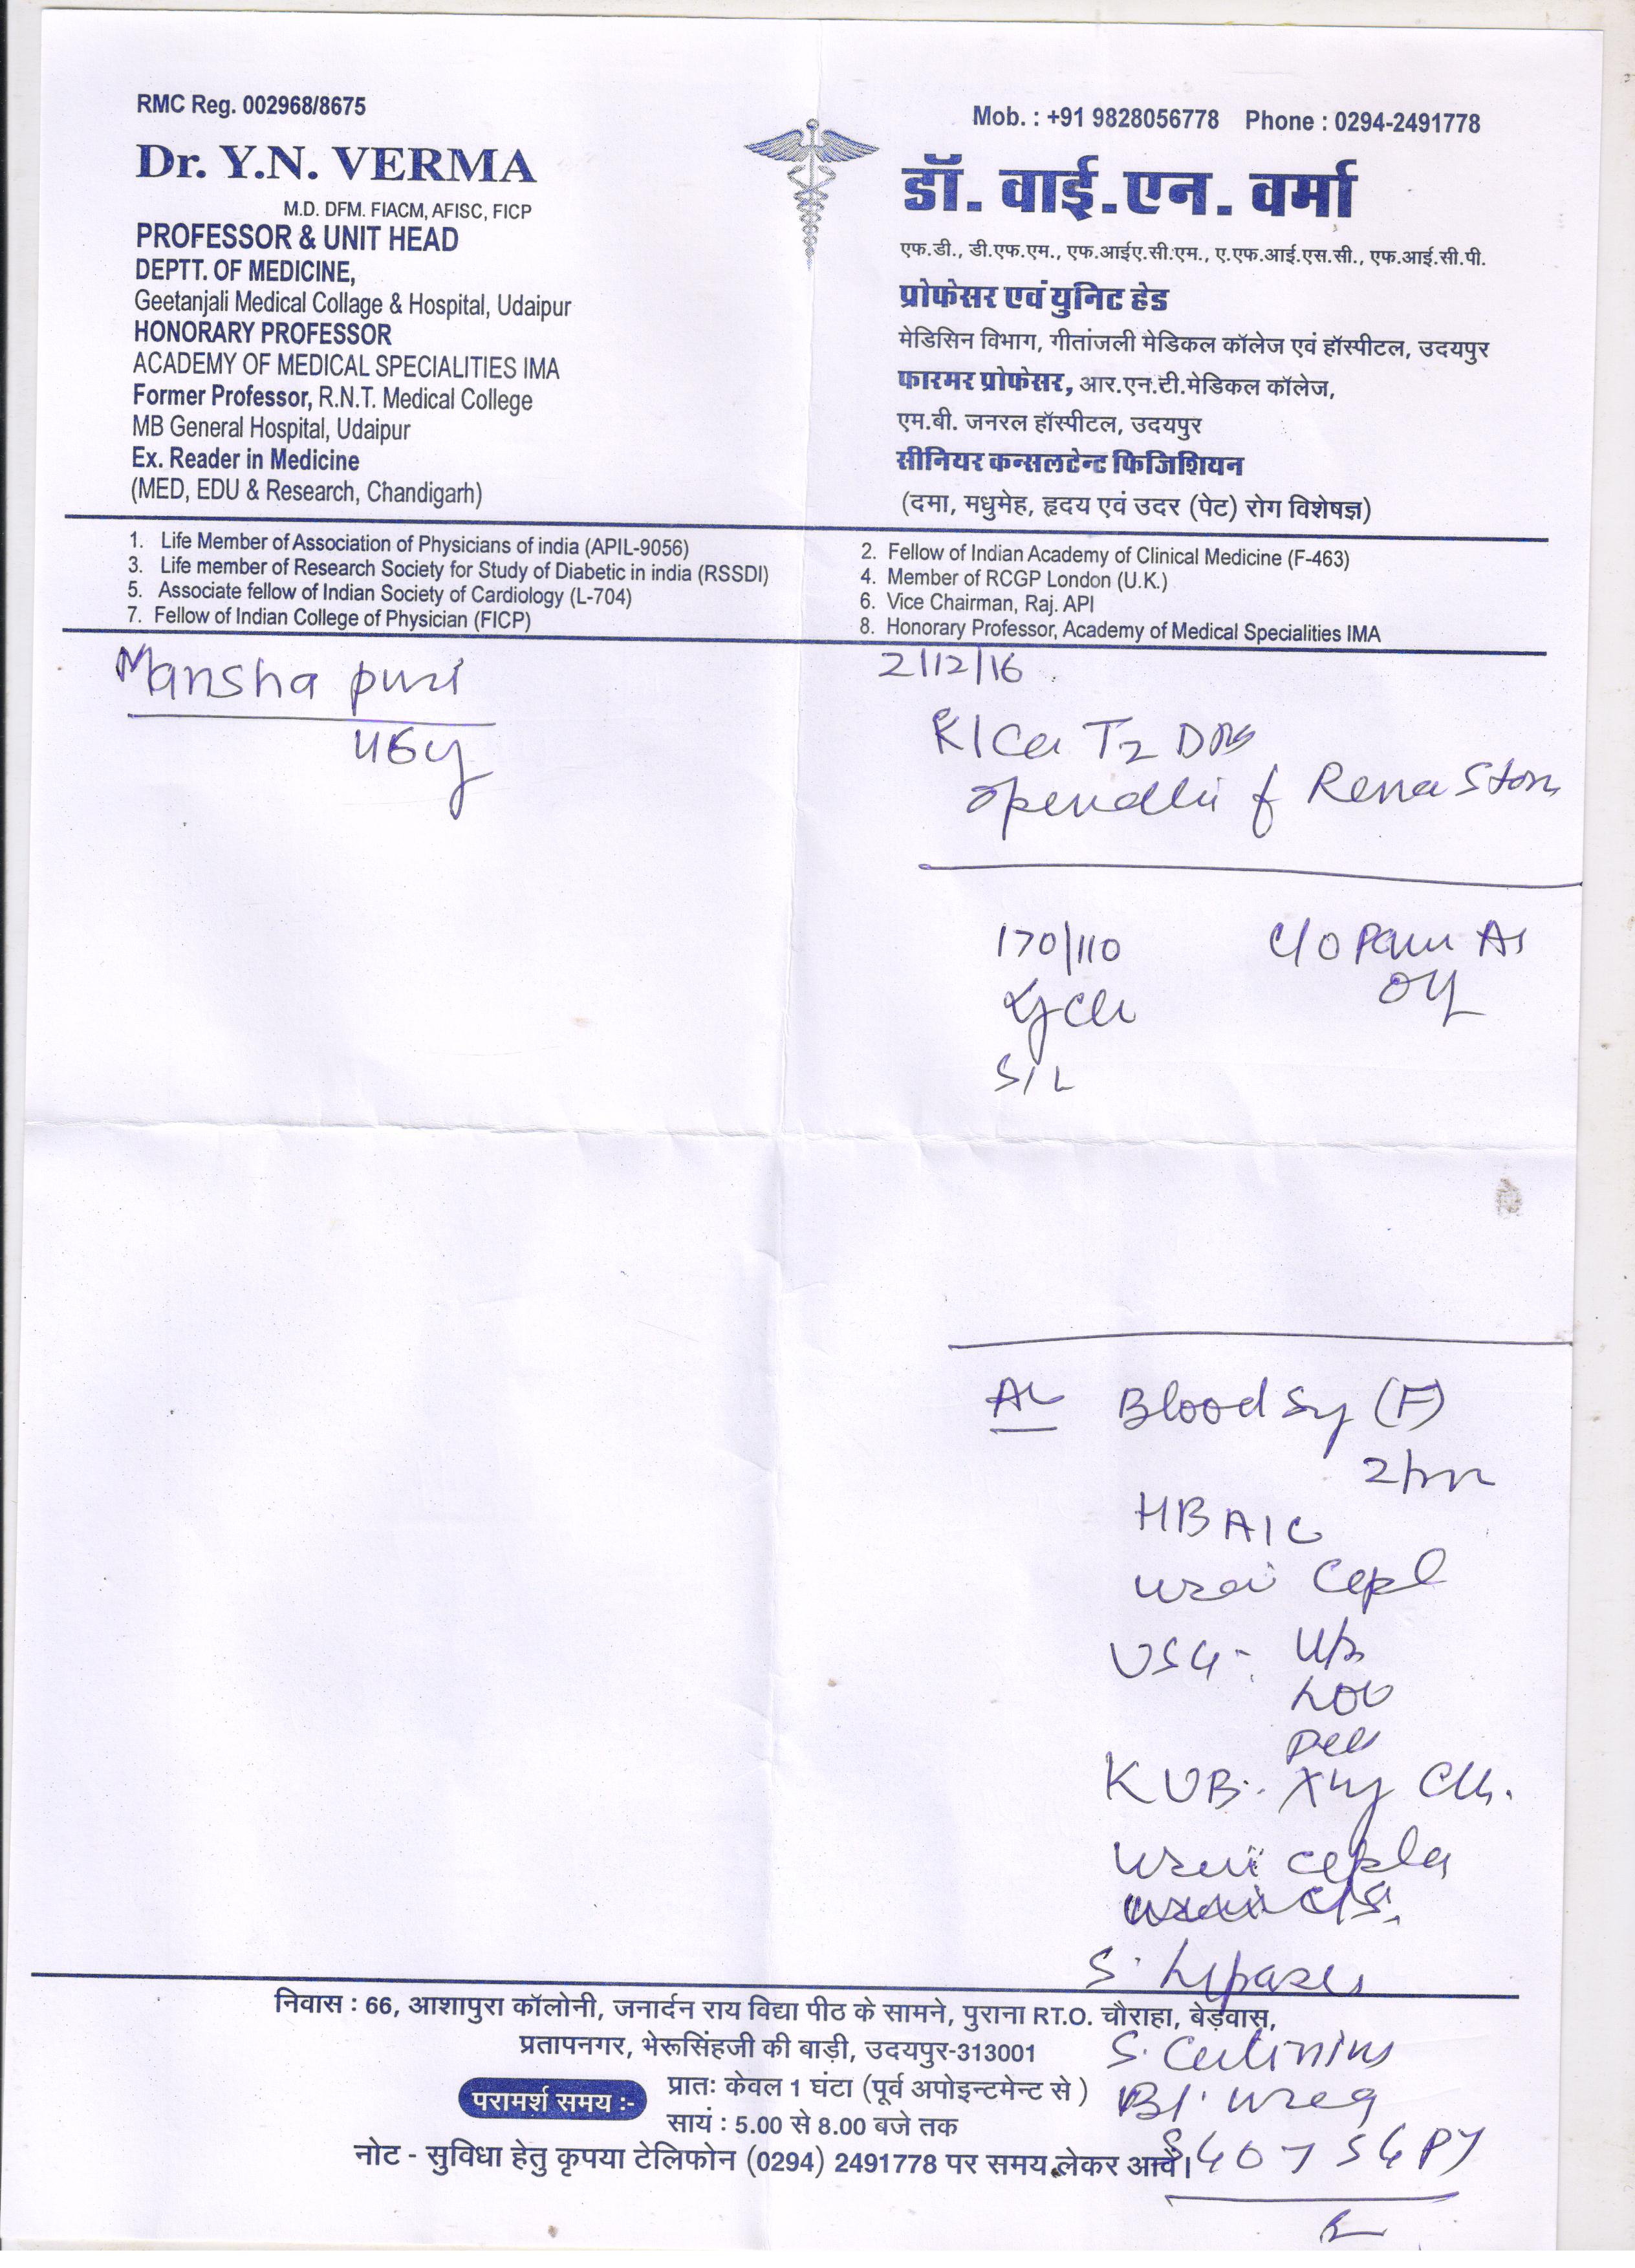 RMC Reg. 002968/8675
Mob. : +91 9828056778 Phone : 0294-2491778
Dr. Y.N. VERMA
M.D. DFM. FIACM, AFISC, FICP
PROFESSOR & UNIT HEAD
DEPTT. OF MEDICINE,
Geetanjali Medical Collage & Hospital, Udaipur
HONORARY PROFESSOR
ACADEMY OF MEDICAL SPECIALITIES IMA
Former Professor, R.N.T. Medical College
MB General Hospital, Udaipur
Ex. Reader in Medicine
(MED, EDU & Research, Chandigarh)
डॉ. वाई.एन. वर्मा
एफ.डी., डी.एफ.एम., एफ.आईए.सी.एम., ए.एफ.आई.एस.सी., एफ.आई.सी.पी.
प्रोफेसर एवं युनिट हेड
मेडिसिन विभाग, गीतांजली मेडिकल कॉलेज एवं हॉस्पीटल, उदयपुर
फारमर प्रोफेसर, आर.एन.टी.मेडिकल कॉलेज,
एम.बी. जनरल हॉस्पीटल, उदयपुर
सीनियर कन्सलटेन्ट फिजिशियन
(दमा, मधुमेह, हृदय एवं उदर (पेट) रोग विशेषज्ञ)
1. Life Member of Association of Physicians of india (APIL-9056)
2. Fellow of Indian Academy of Clinical Medicine (F-463)
3. Life member of Research Society for Study of Diabetic in india (RSSDI)
4. Member of RCGP London (U.K.)
5. Associate fellow of Indian Society of Cardiology (L-704)
6. Vice Chairman, Raj. API
7. Fellow of Indian College of Physician (FICP)
8. Honorary Professor, Academy of Medical Specialities IMA
Mansha puri
46y
2/12/16
T2 DM
Renal Stone
170/110
C/O Pain
Blood Sy (F)
2hr
HBA1C
USG -
KUB
S. Lipase
Bl. urea
SGOT SGPT
निवास : 66, आशापुरा कॉलोनी, जनार्दन राय विद्या पीठ के सामने, पुराना RT.O. चौराहा, बेड़वास,
प्रतापनगर, भेरूसिंहजी की बाड़ी, उदयपुर-313001
परामर्श समय :-
प्रातः केवल 1 घंटा (पूर्व अपोइन्टमेन्ट से )
सायं : 5.00 से 8.00 बजे तक
नोट - सुविधा हेतु कृपया टेलिफोन (0294) 2491778 पर समय लेकर आवें।